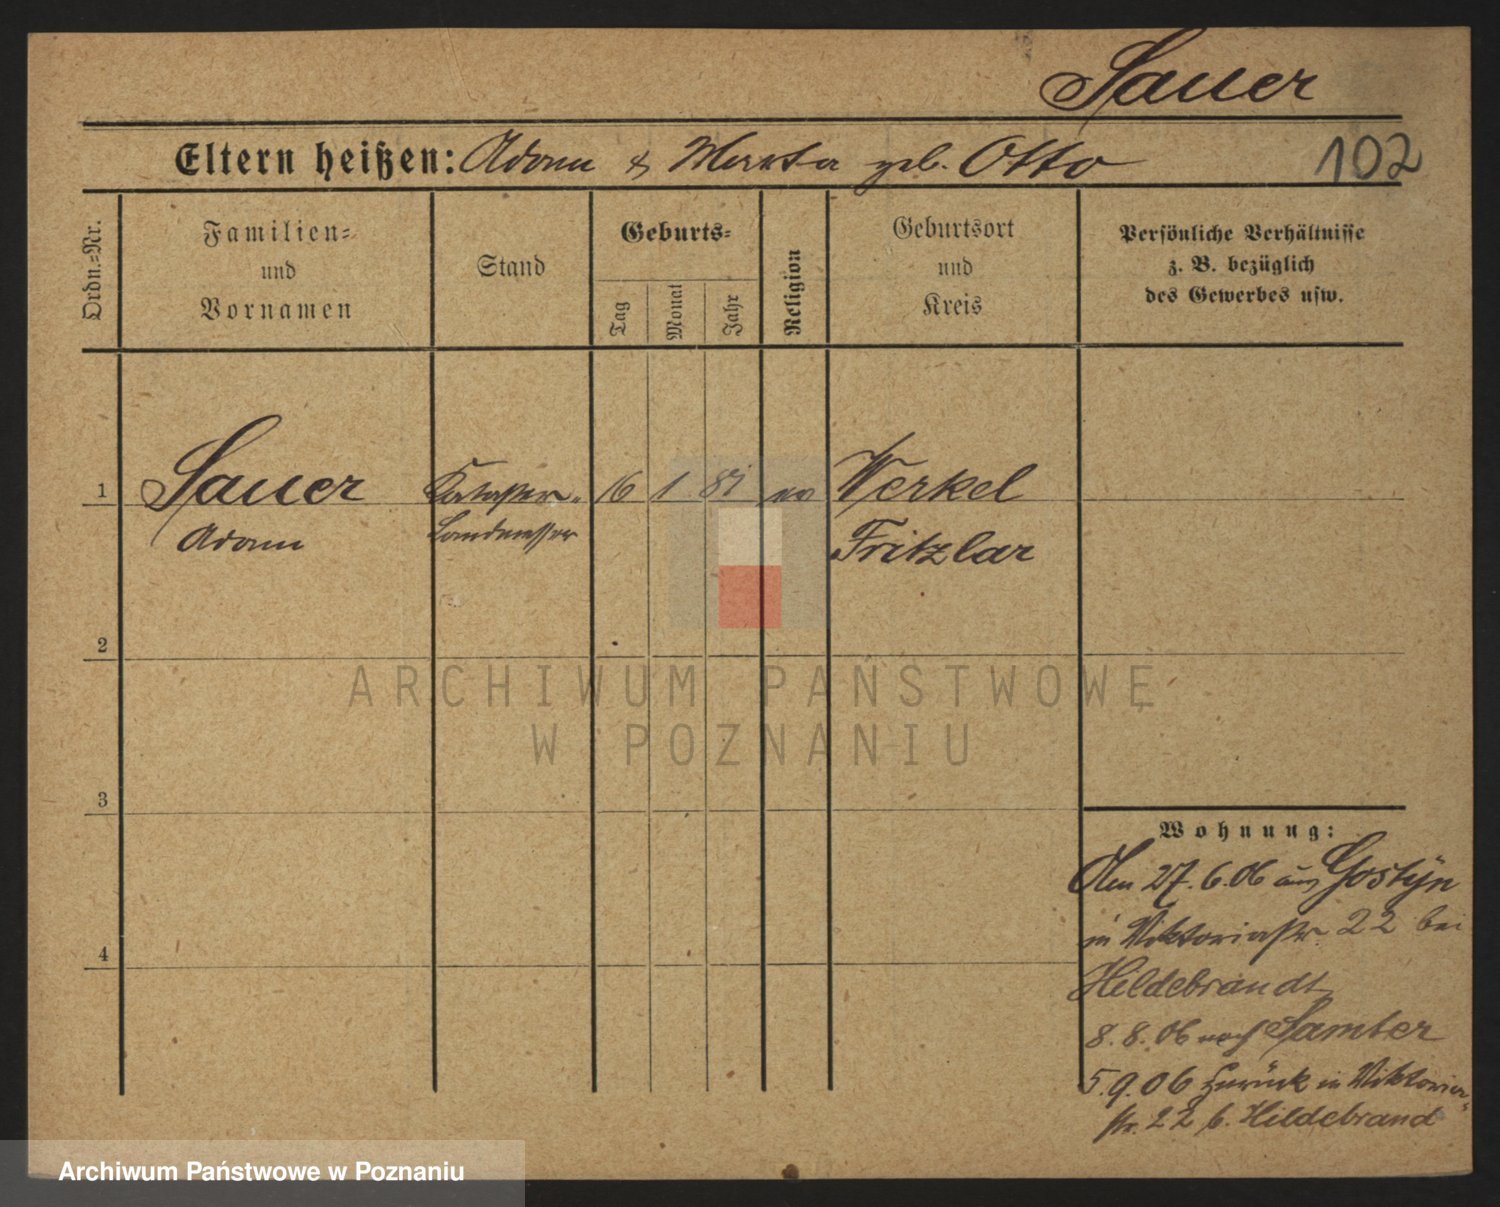 Sauer
Eltern heißen: Adam & Marta geb. Otto
102
Ordn.-Nr.
Familien-
und
Vornamen
Stand
Geburts-
Tag
Monat
Jahr
Religion
Geburtsort
und
Kreis
Persönliche Verhältnisse
z. B. bezüglich
des Gewerbes usw.
1
Sauer
Adam
Kataster-
Landmesser
16 1 81 ev
Werkel
Fritzlar
2
3
4
ARCHIWUM PAŃSTWOWE
W POZNANIU
Wohnung:
Am 27.6.06 aus Gostyn
in Viktoriastr. 22 bei
Hildebrandt
8.8.06 nach Samter
5.9.06 zurück in Viktoria-
str. 22 b. Hildebrand
Archiwum Państwowe w Poznaniu